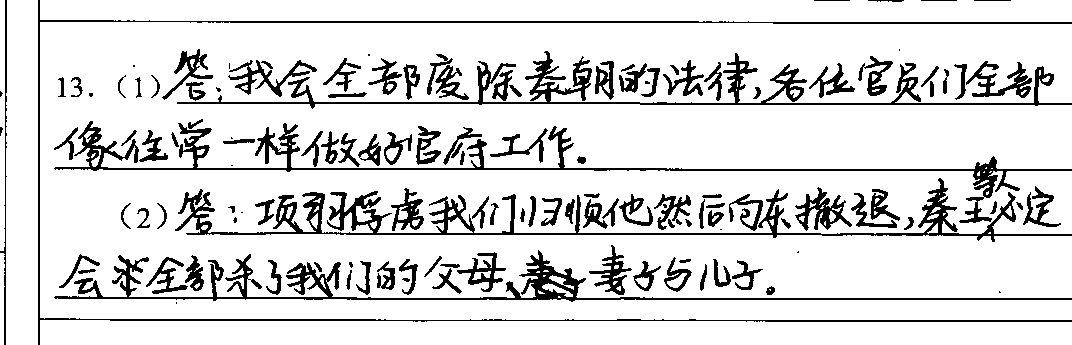 13.（1）答：我会全部废除秦朝的法律,各位官员们全部
像往常一样做好官府工作。
（2）答：项羽俘虏我们归顺他然后向东撤退,秦王等人必定
会全部杀了我们的父母、妻子与儿子。